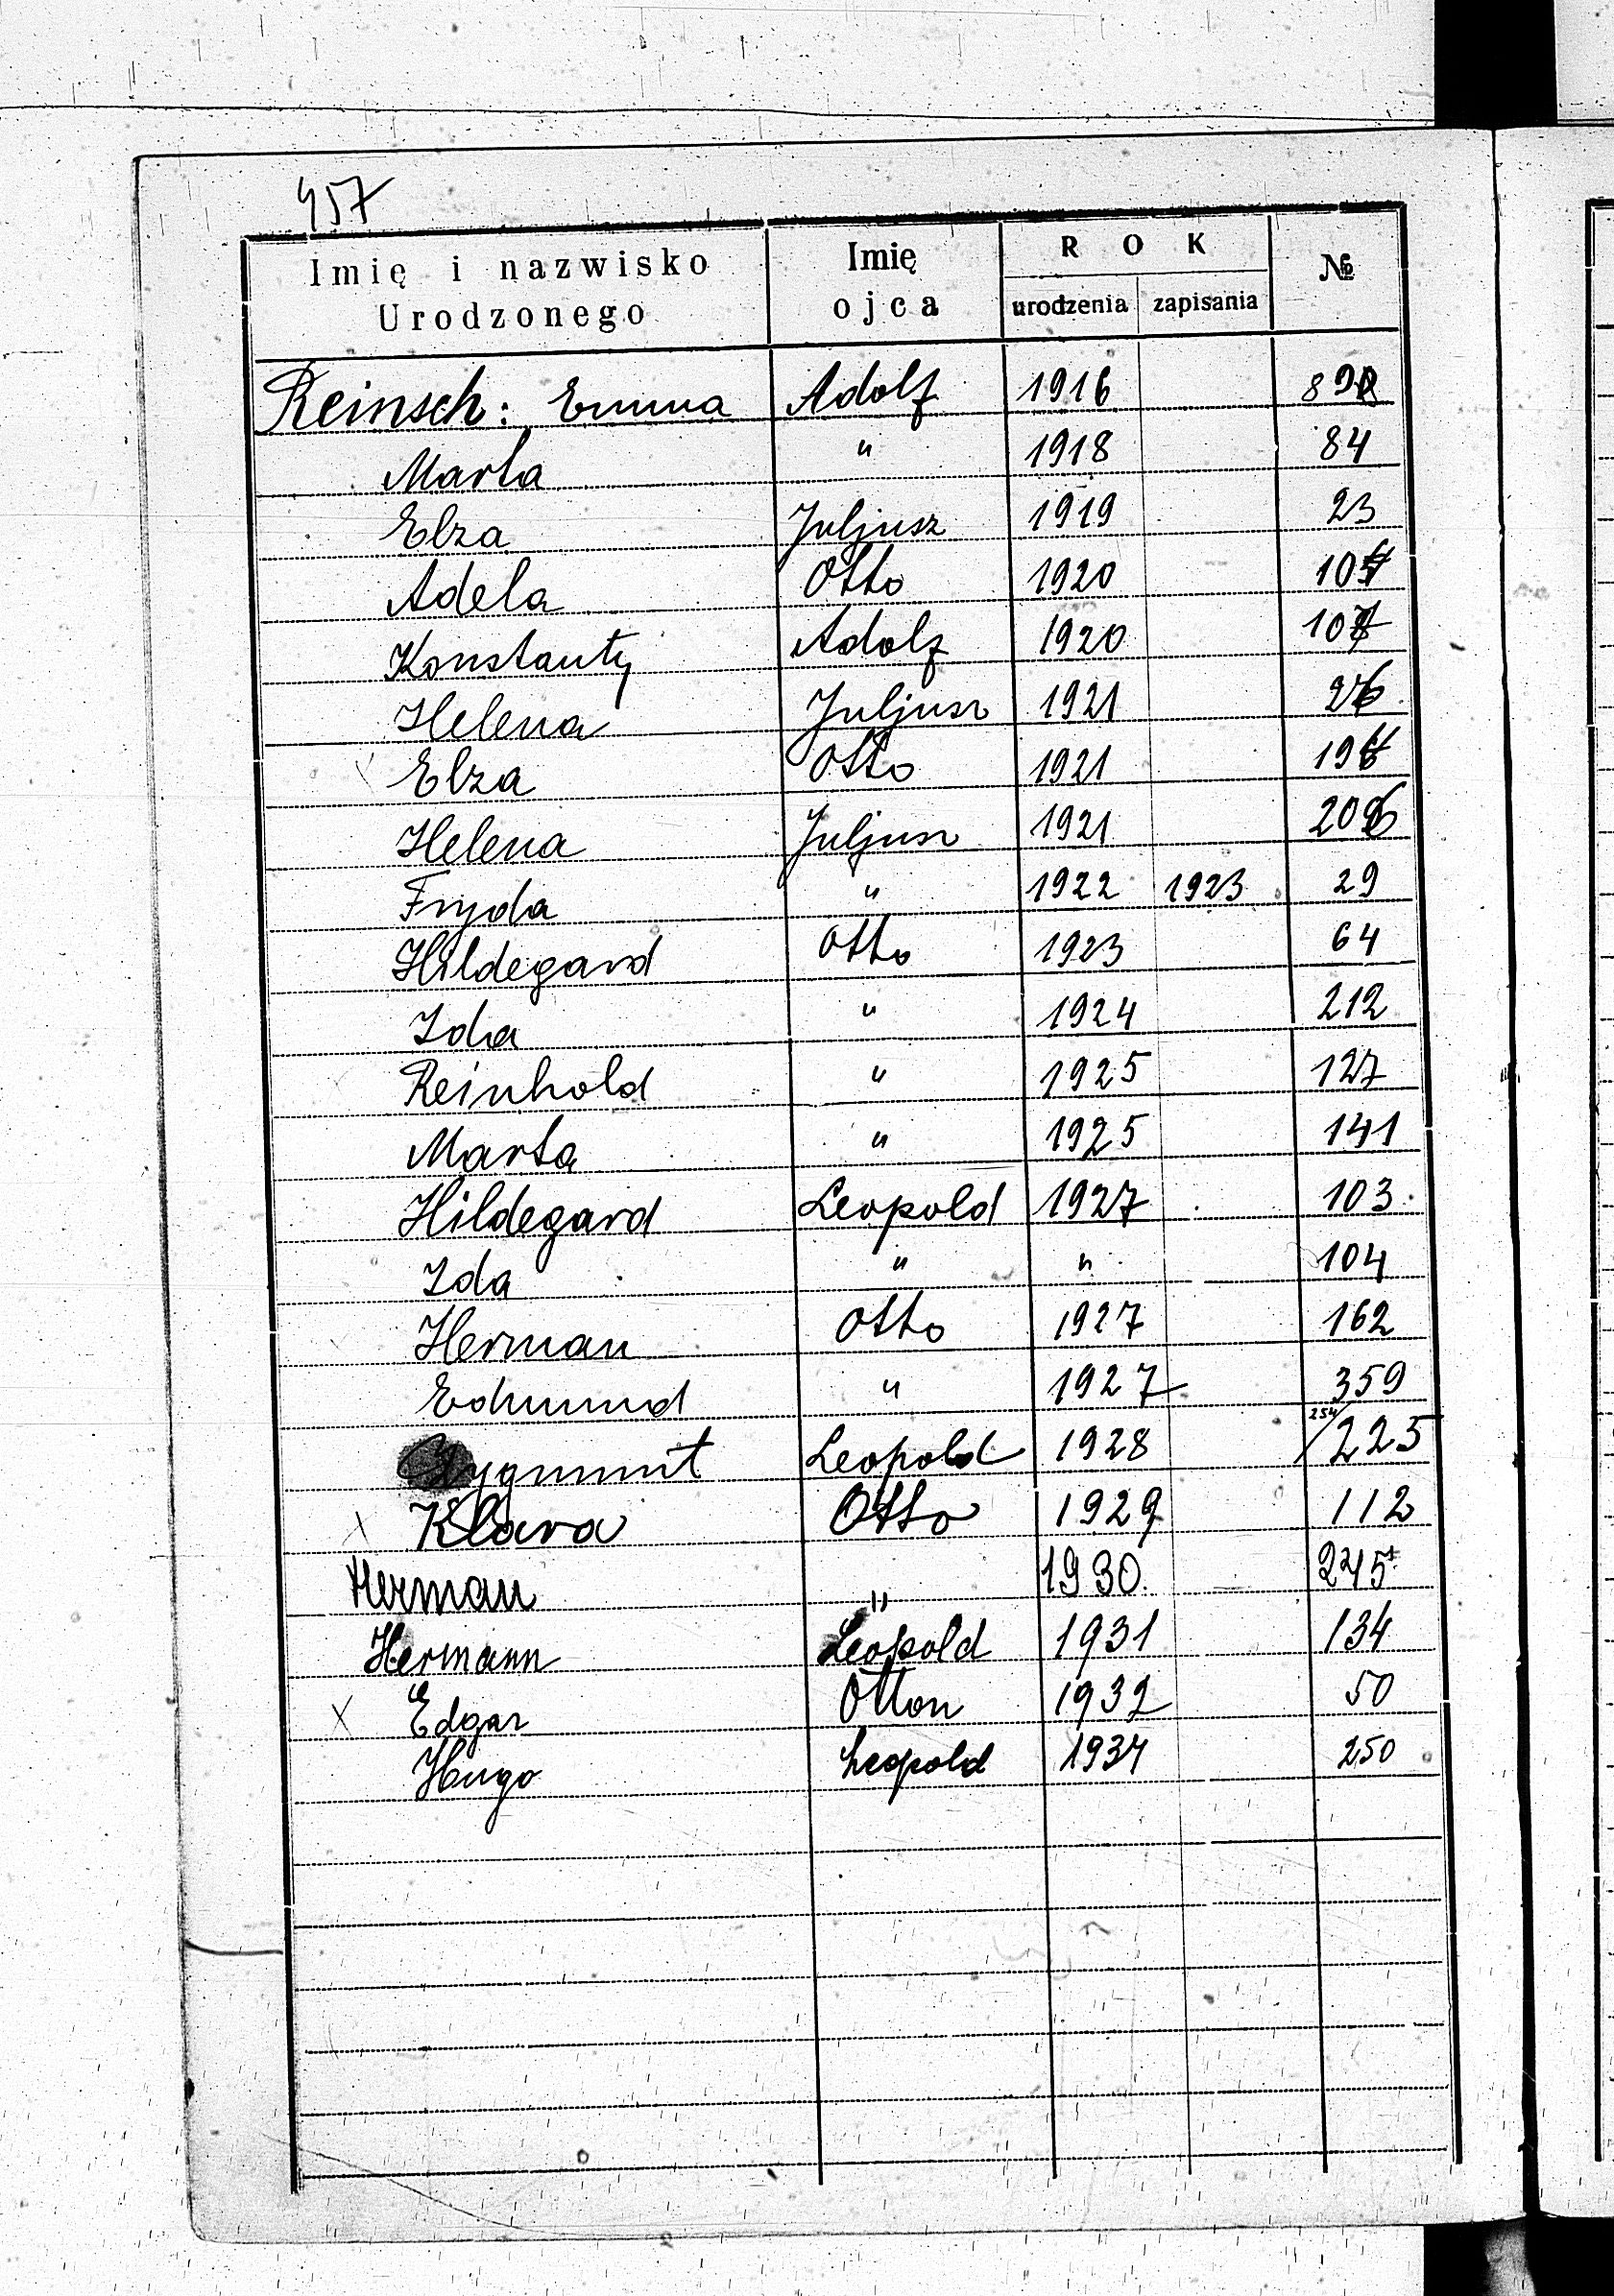 457
Imię i nazwisko Urodzonego | Imię ojca | ROK urodzenia | zapisania | №
Reinsch: Emma Adolf 1916
Marta " 1918 84
Elza Juljusz 1919 23
Adela Otto 1920
Konstanty Adolf 1920
Helena Juljusz 1921
Elza Otto 1921
Helena Juljusz 1921
Fryda " 1922 1923 29
Hildegard Otto 1923 64
Ida " 1924 212
Reinhold " 1925 127
Marta " 1925 141
Hildegard Leopold 1927 103
Ida " " 104
Herman Otto 1927 162
Edmund " 1927 359
Zygmunt Leopold 1928 254/225
x Klara Otto 1929 112
Herman " 1930 245
Hermann Leopold 1931 134
x Edgar Otton 1932 50
Hugo Leopold 1934 250